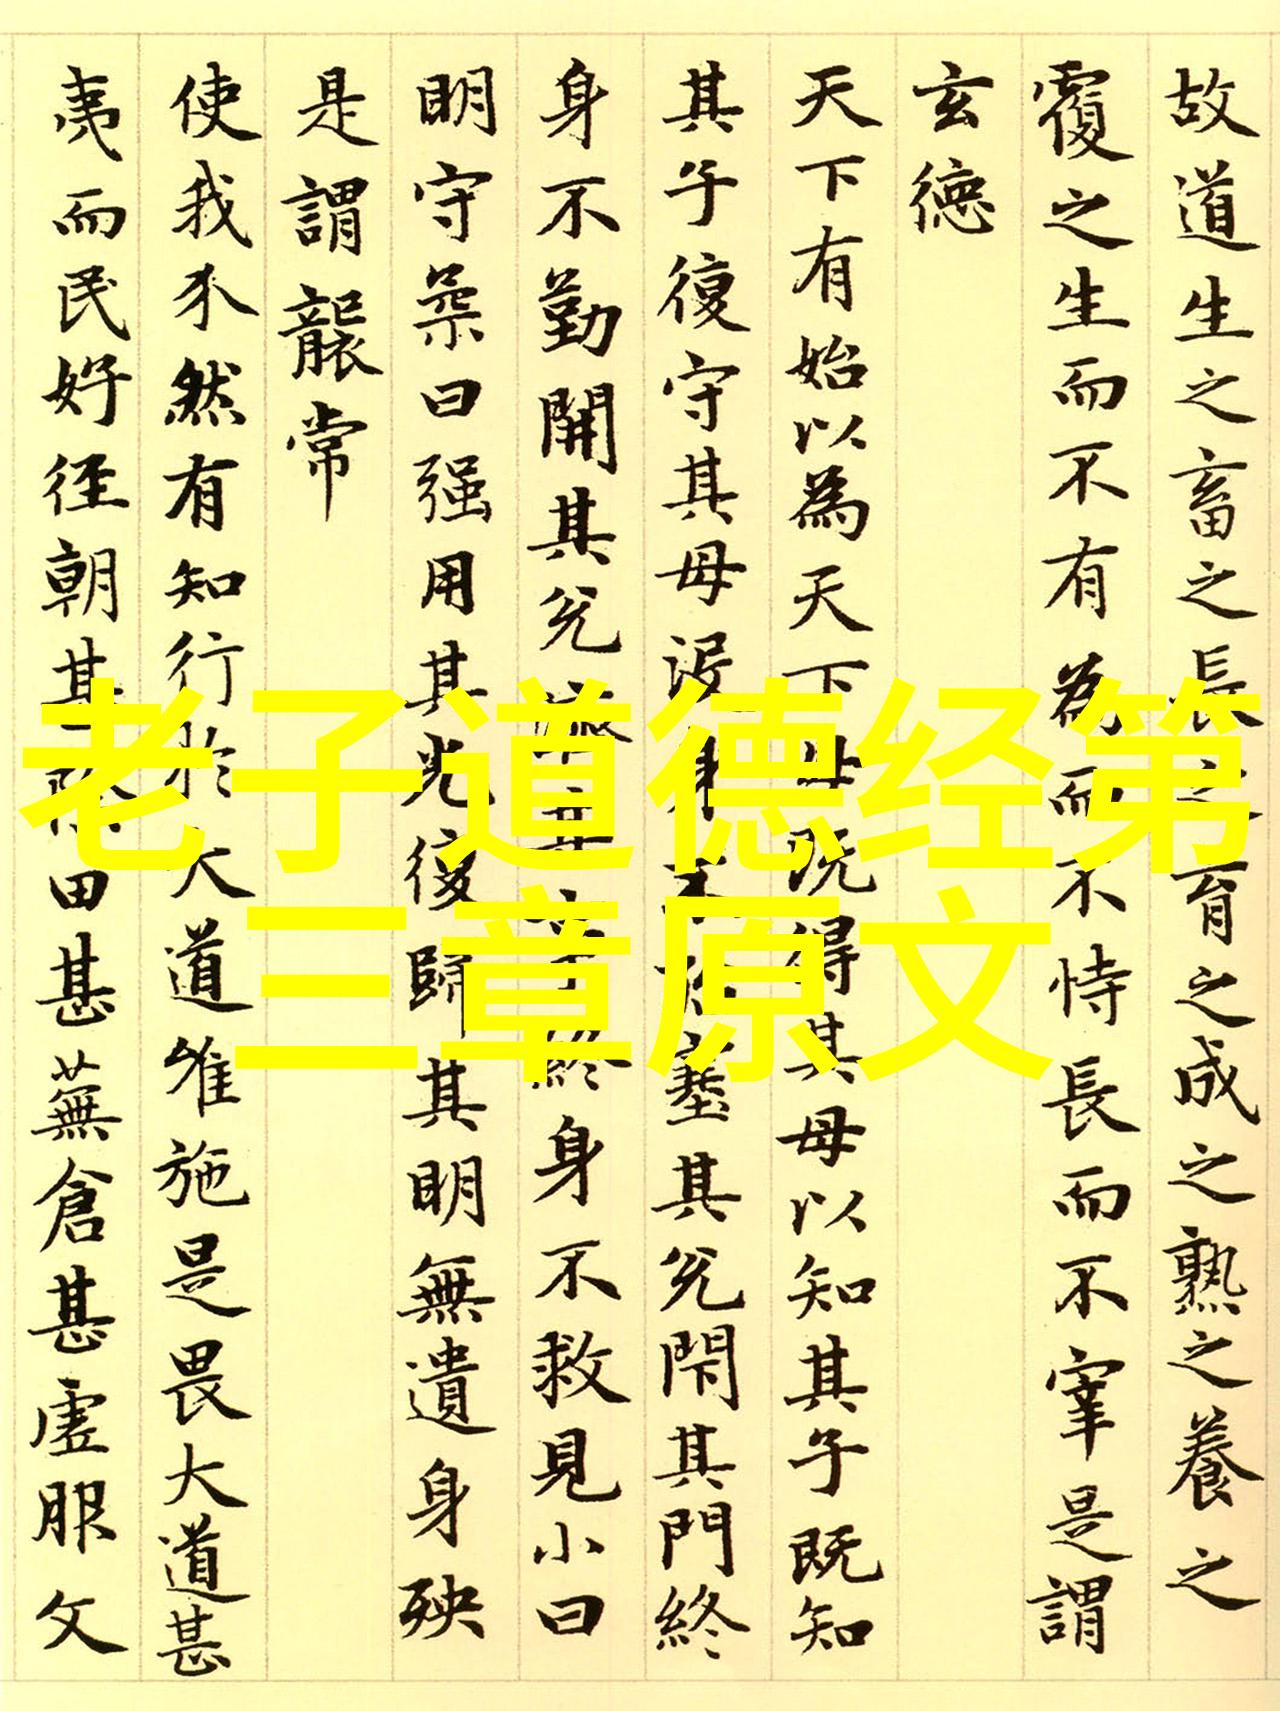 故道生之畜之長之育之成之熟之養之
覆之生而不有為而不恃長而不宰是謂
玄德
天下有始以為天下母既得其母以知其子既知
其子復守其母没身不殆塞其兊閇其門終
身不勤開其兊濟其事終身不救見小曰
明守柔曰强用其光復歸其明無遺身殃
是謂襲常
使我介然有知行於大道唯施是畏大道甚
夷而民好徑朝甚除田甚蕪倉甚虛服文
老子道德经第
三章原文